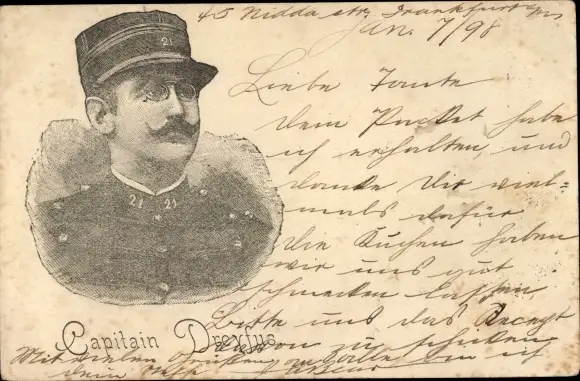 45 Nidda str. Frankfurt
Jan. 7/98
Liebe Tante
Dein Packet habe
ich erhalten, und
danke Dir viel-
mals dafür
Die Kuchen haben
wir uns gut
schmecken lassen
Bitte uns das Recept
davon zu schicken
Mit vielen Grüßen
dein
21
21 21
Capitain Dreyfus